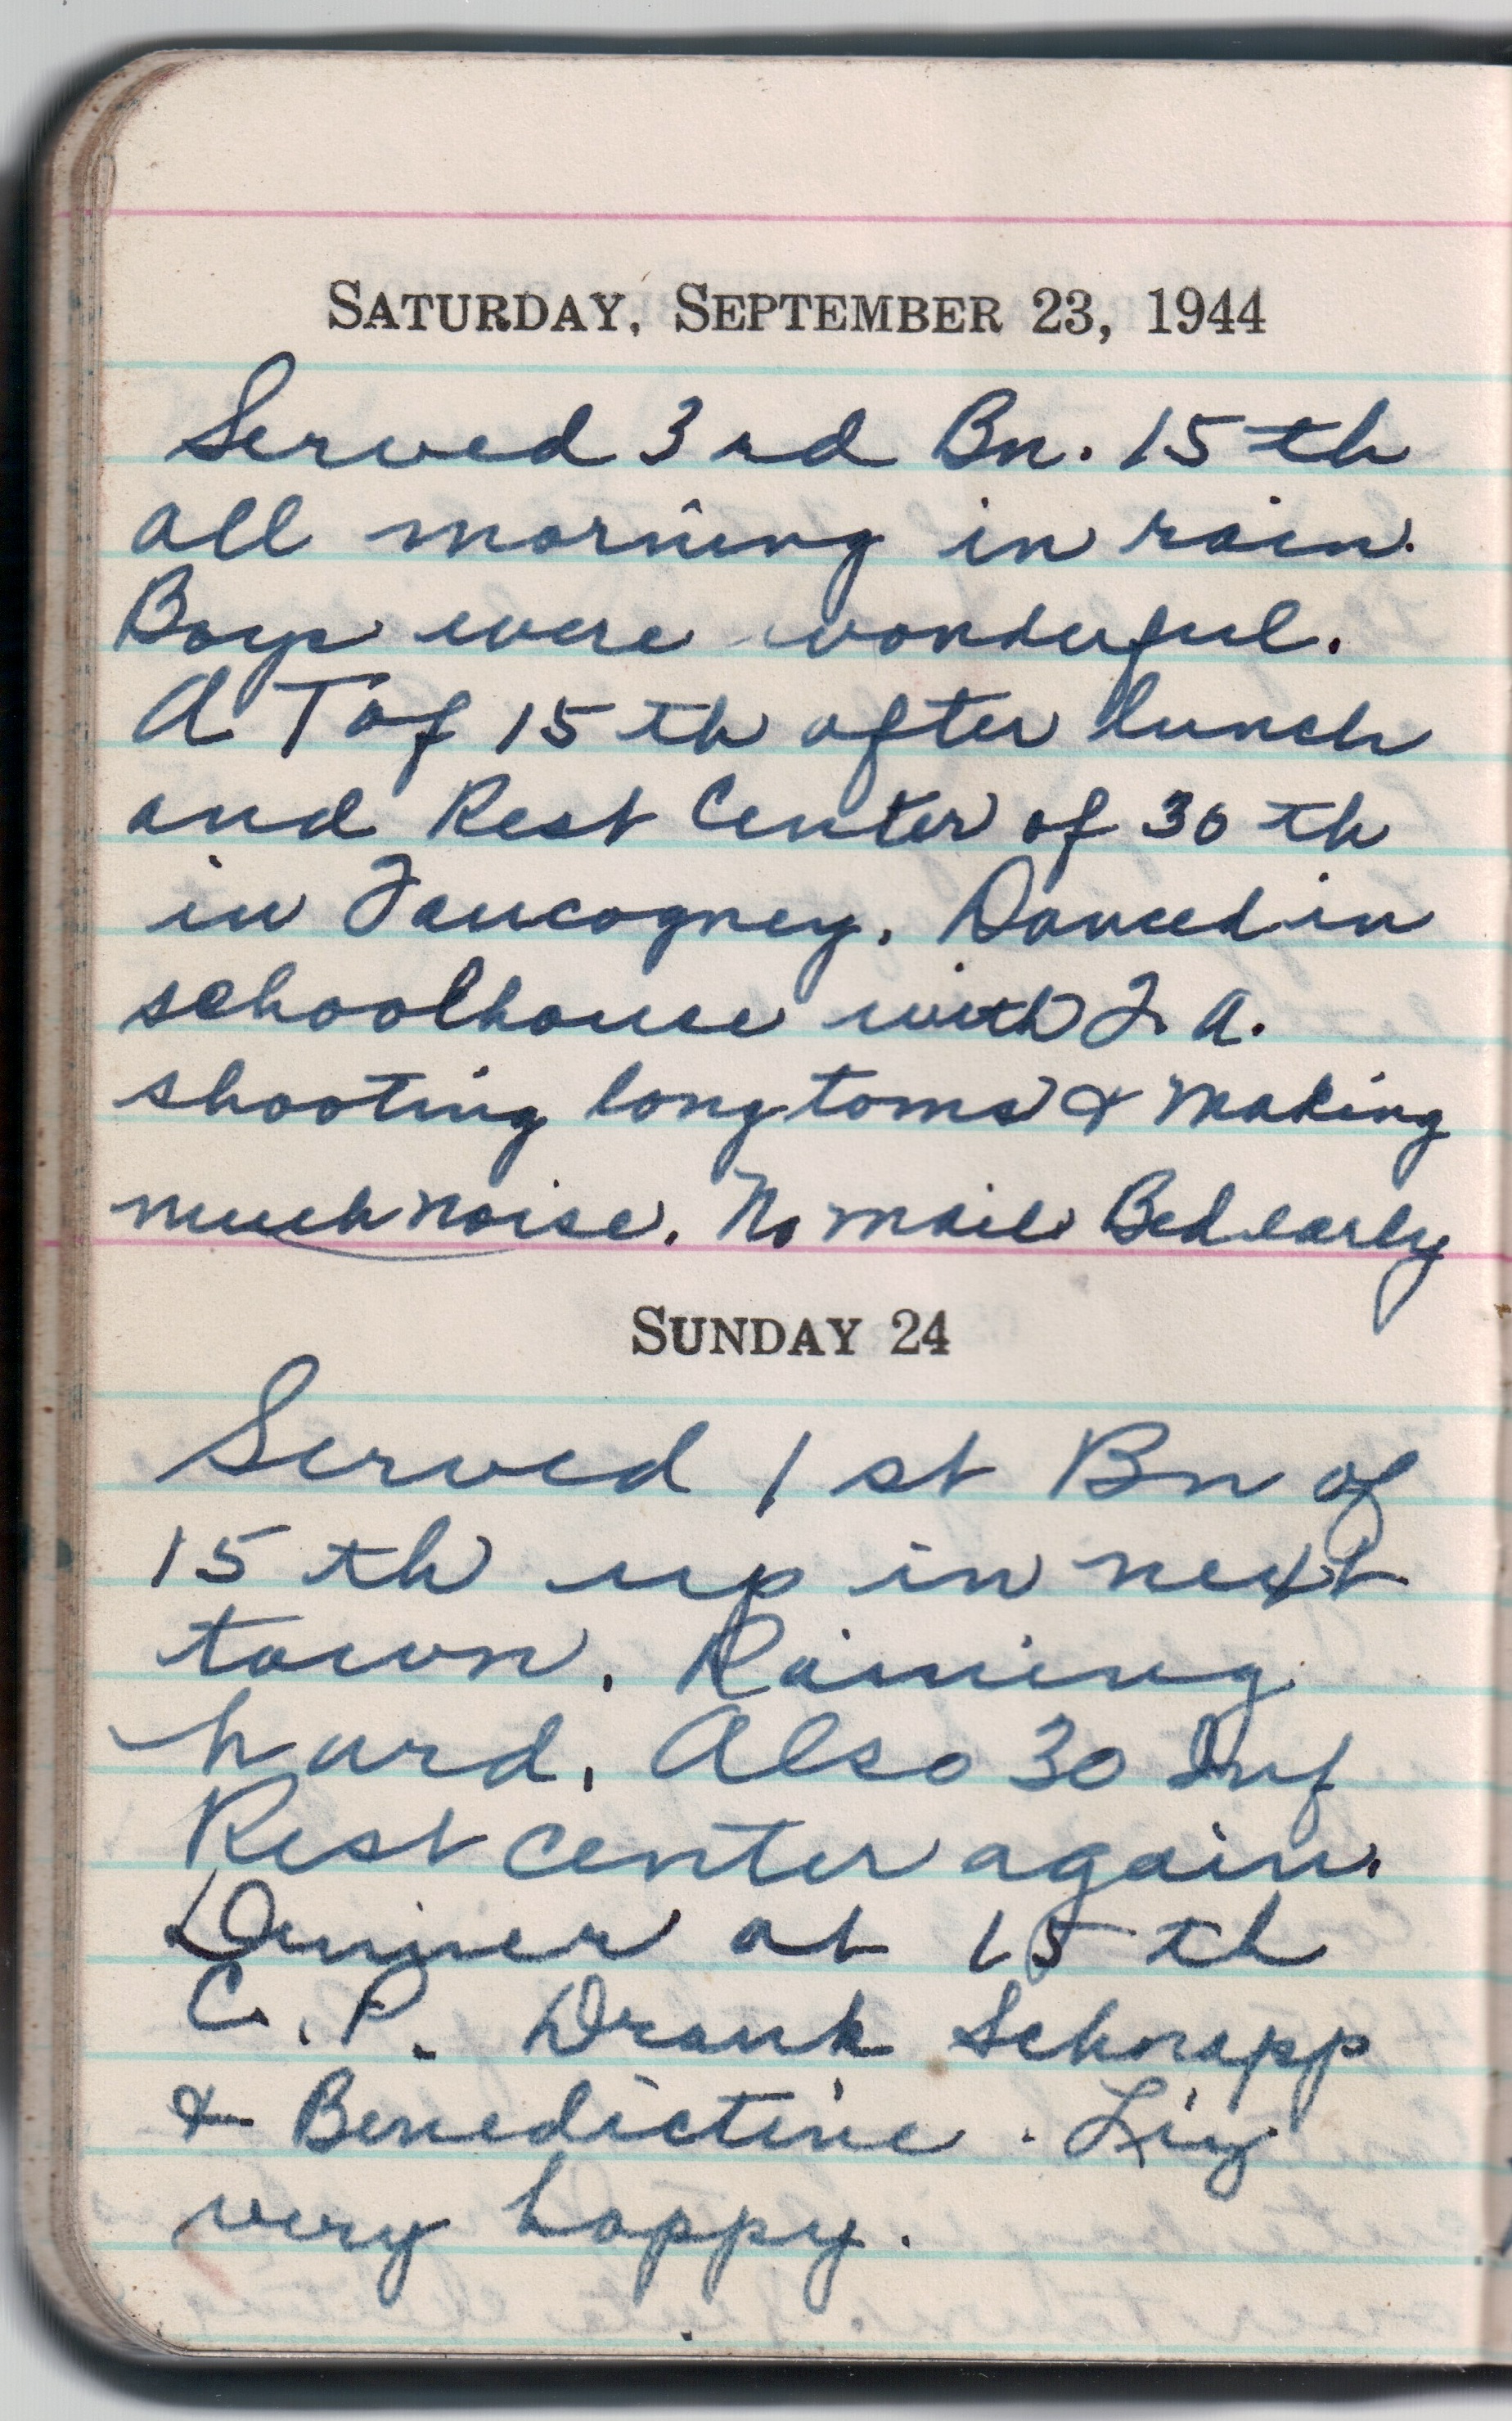 SATURDAY, SEPTEMBER 23, 1944
Served 3rd Bn. 15th
all morning in rain.
Boys were wonderful.
A T of 15th after lunch
and Rest Center of 30th
in Faucogney. Danced in
schoolhouse with F. A.
shooting long toms & making
much noise. No mail. Bed early
SUNDAY 24
Served 1st Bn of
15th up in next
town. Raining
hard. Also 30 Inf
Rest center again.
Dinner at 15th
C. P. Drank Schnapp
& Benedictine. Liz
very happy.